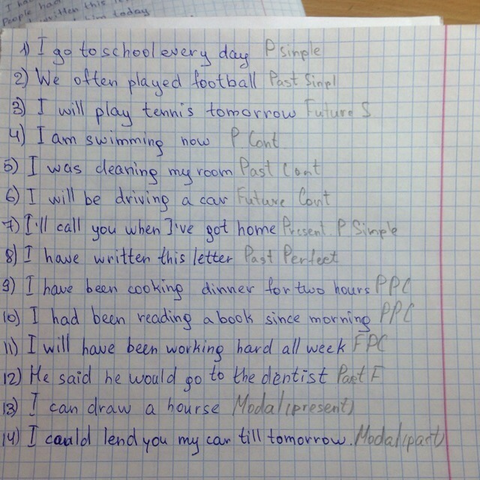 written this
him today
1) I go to school every day P simple
2) We often played football Past Simpl
3) I will play tennis tomorrow Future S.
4) I am swimming now P Cont
5) I was cleaning my room Past Cont
6) I will be driving a car Future Cont
7) I'll call you when I've got home Present P Simple
8) I have written this letter Past Perfect
9) I have been cooking dinner for two hours PPC
10) I had been reading a book since morning PPC
11) I will have been working hard all week FPC
12) He said he would go to the dentist Past F
13) I can draw a hourse Modal (present)
14) I could lend you my car till tomorrow. Modal (past)